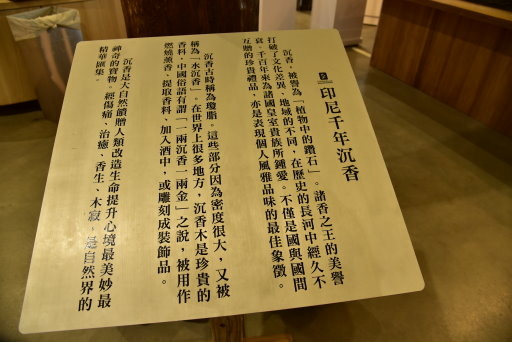 印尼千年沉香
沉香，被譽為「植物中的鑽石」。諸香之王的美譽
打破了文化差異、地域的不同，在歷史的長河中經久不
衰。千百年來為諸國皇室貴族所鍾愛。不僅是國與國間
互贈的珍貴禮品，亦是表現個人風雅品味的最佳象徵。
沉香古時稱為瓊脂。這些部分因為密度很大，又被
稱為「水沉香」。在世界上很多地方，沉香木是珍貴的
香料，中國俗語有謂「一兩沉香一兩金」之說，被用作
燃燒薰香、提取香料、加入酒中，或雕刻成裝飾品。
沉香是大自然饋贈人類改造生命提升心境最美妙最
神奇的寶物。經傷痛、治癒、香生、木寂。是自然界的
精華匯集。